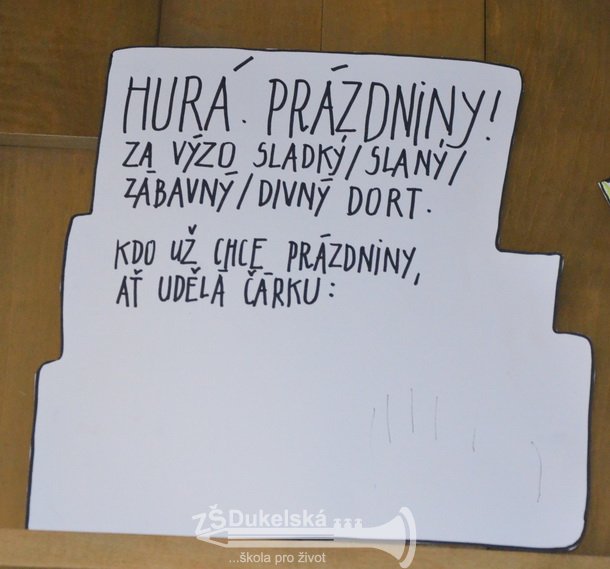 HURÁ. PRÁZDNINY!
ZA VÝZO SLADKÝ/SLANÝ/
ZÁBAVNÝ/DIVNÝ DORT.
KDO UŽ CHCE PRÁZDNINY,
AŤ UDĚLÁ ČÁRKU:
ZŠ Dukelská
...škola pro život